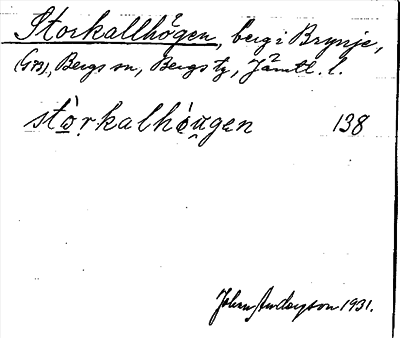 Storkallhögen, berg i Brynje,
(G73), Bergs sn, Bergs tg, Jämtl. l.
stò̱ṛkalhò̱u̯gen 138
John Anderson 1931.